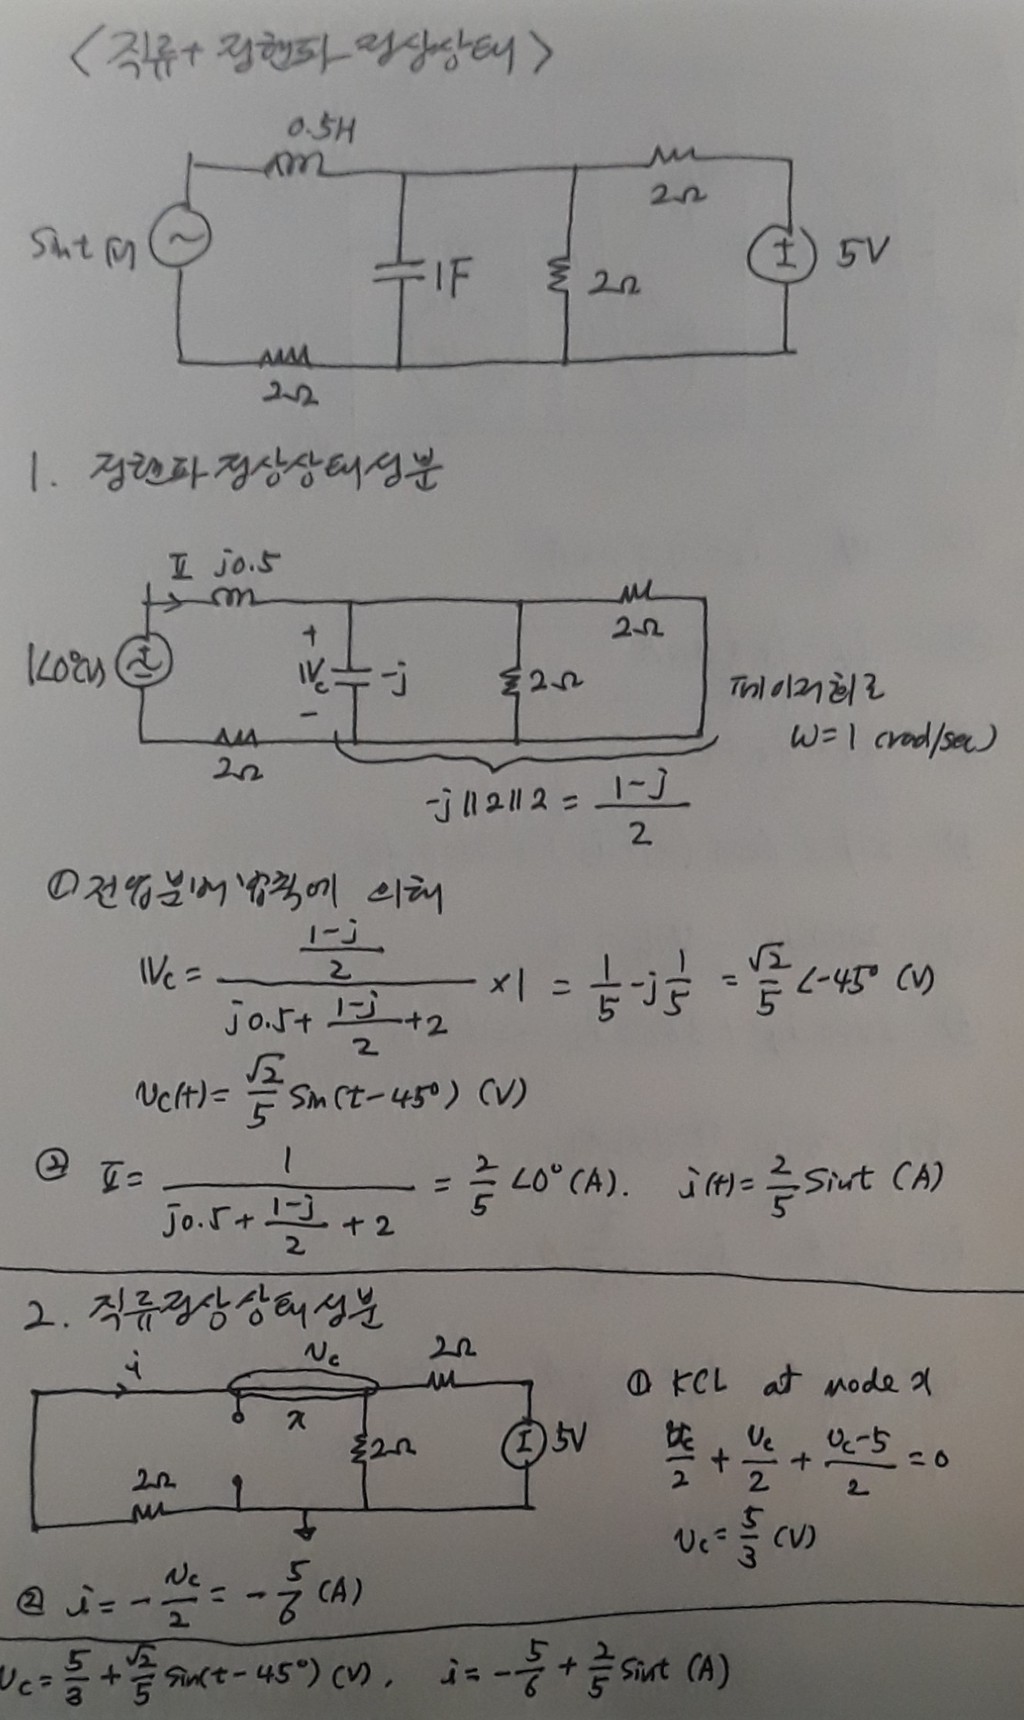 <직류+정현파 정상상태>
0.5H
2Ω
sint (V)
1F
2Ω
5V
2Ω
1. 정현파 정상상태 성분
I j0.5
2Ω
1∠0°(V)
+
Vc
-
-j
2Ω
페이저회로
ω=1 (rad/sec)
2Ω
-j||2||2 = (1-j)/2
① 전압분배법칙에 의해
Vc = ((1-j)/2)/(j0.5+(1-j)/2+2) ×1 = 1/5 - j1/5 = √2/5 ∠-45° (V)
vc(t) = √2/5 sin(t-45°) (V)
② I = 1/(j0.5+(1-j)/2+2) = 2/5 ∠0° (A). i(t) = 2/5 sint (A)
2. 직류정상상태성분
i
vc
2Ω
x
2Ω
5V
2Ω
① KCL at node x
vc/2 + vc/2 + (vc-5)/2 = 0
vc = 5/3 (V)
② i = -vc/2 = -5/6 (A)
vc = 5/3 + √2/5 sin(t-45°) (V), i = -5/6 + 2/5 sint (A)